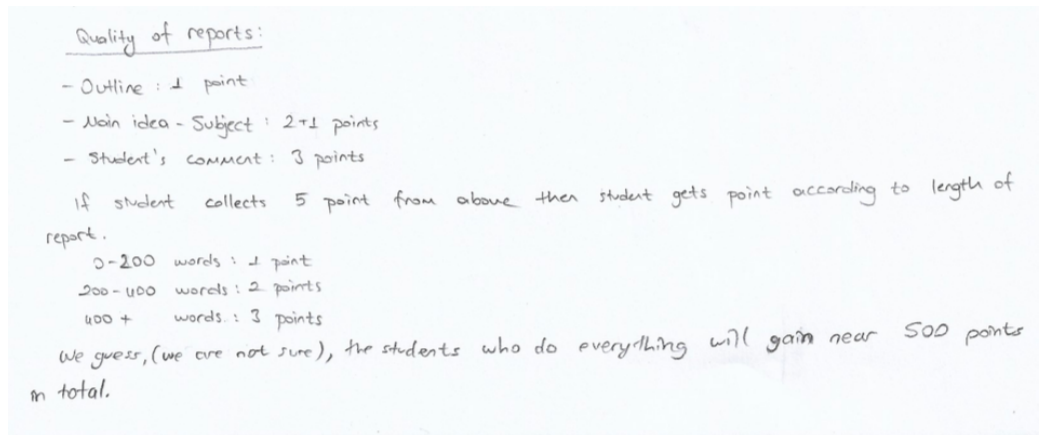 Quality of reports:
- Outline : 1 point
- Main idea - Subject : 2+1 points
- Student's comment : 3 points
If student collects 5 point from above then student gets point according to length of
report.
0-200 words : 1 point
200-400 words : 2 points
400 + words. : 3 points
We guess, (we are not sure), the students who do everything will gain near 500 points
in total.